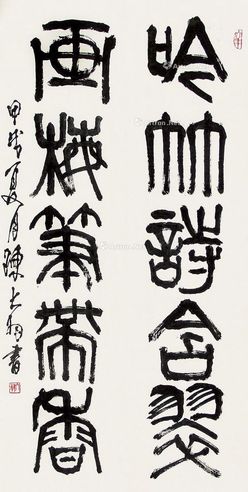 吟竹詩含翠
画梅筆带香
甲戌夏月陳大羽書